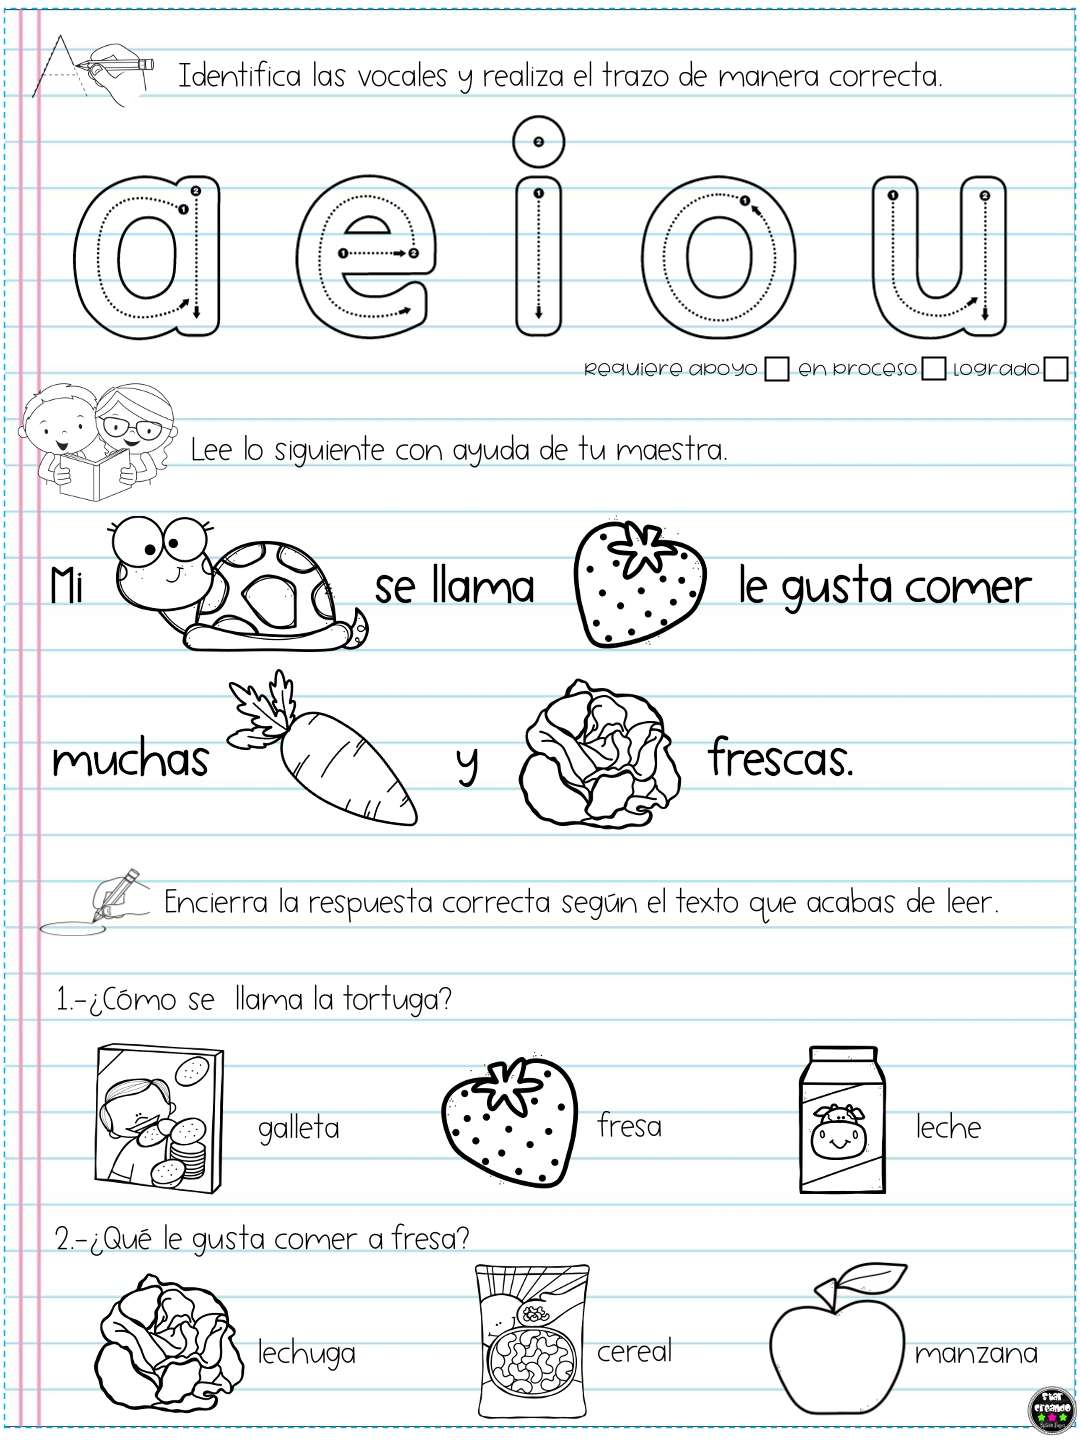 Identifica las vocales y realiza el trazo de manera correcta.
a e i o u
Requiere apoyo en proceso Logrado
Lee lo siguiente con ayuda de tu maestra.
Mi se llama le gusta comer
muchas y frescas.
Encierra la respuesta correcta según el texto que acabas de leer.
1.-¿Cómo se llama la tortuga?
galleta fresa leche
2.-¿Qué le gusta comer a fresa?
lechuga cereal manzana
Star
creando